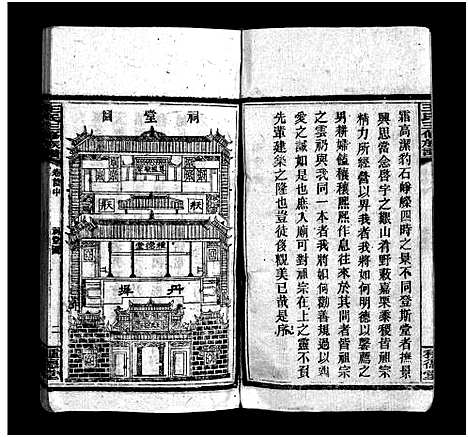 霜高潔豹石崢嶸四時之景不同登斯堂者撫景
興思當念啓宇之艱山肴野蔌嘉栗黍稷皆祖宗
精力所經營以畀我者我將如何明德以馨薦之
男耕婦饁穰穰熙熙作息往來於其間者皆祖宗
之雲礽與我同一本者我將如何勸善規過以肅
愛之誠如是也庶入廟可對祖宗在上之靈不負
先輩建築之隆也豈徒後觀美已哉是序
祠堂圖
丹墀
卷首中
祠堂圖
二